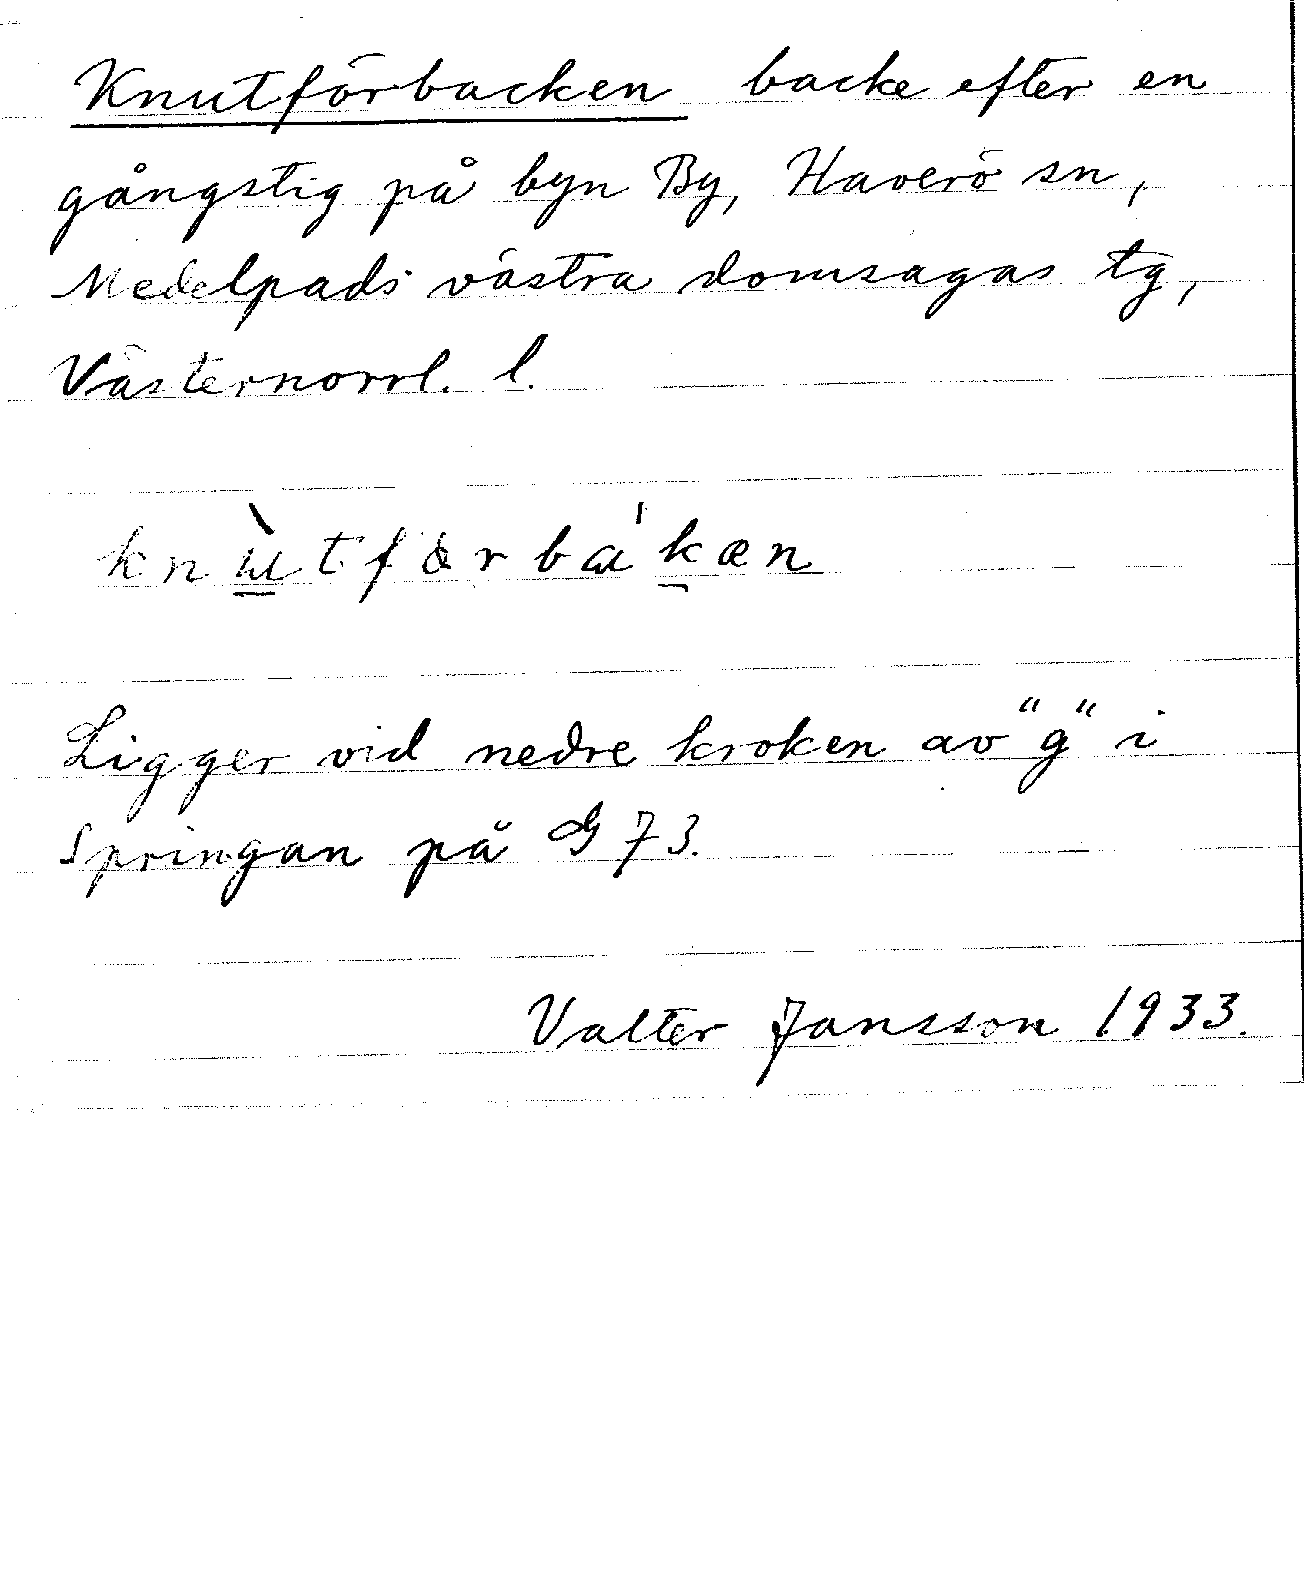 Knutförbacken backe efter en
gångstig på byn By, Haverö sn,
Medelpads västra domsagas tg,
Västernorrl. l.
Ligger vid nedre kroken av "g" i
Springan på G 73.
Valter Jansson 1933.